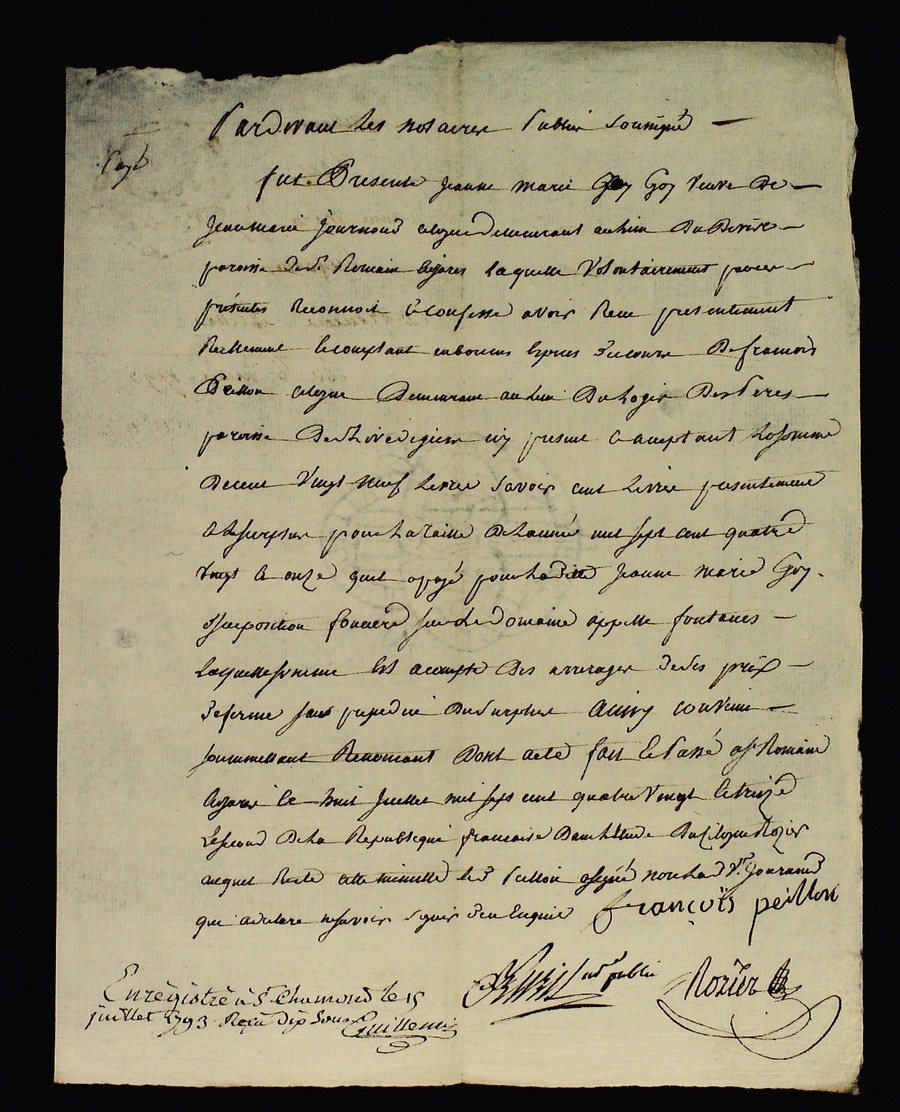 Pardevant Les notaires Publics Soussignés
Payé
fut Presente Jeanne marie Goy veuve De
Jeanmarie Journoud citoyen demeurant au lieu Du
paroisse de St Romain Laquelle Volontairement par ces
présentes Reconnoit & confesse avoir Receu presentement
Reellement & comptant en bonnes Especes de cours De francois
Peillon citoyen Demeurant au Lieu Du Logis Des Peres
paroisse De icy present & acceptant La somme
De cent Vingt neuf Livres Savoir cent Livres presentement
& Le surplus pour La taille De Lannée mil sept cent quatre
vingt & onze quil a payé pour La ditte Jeanne marie Goy
Imposition fonciere sur Le Domaine appellé fontanes
Laquelle somme Est acompte Des arrerages De ses prix
De ferme sans prejudice Du surplus Ainsy convenu
soummettant Renoncant Dont acte fait & Passé a St Romain
Le huit Juillet mil sept cent quatre Vingt & treize
Lesecond De La Republique francaise Dans Letude Du Citoyen Rozier
auquel Reste cette minutte Led Peillon a signé non Lad Ve Journoud
qui a declare ne savoir signer De ce Enquise françois peillon
not public Rozier
Enregistré à St Chamond le 15
juillet 1793 Reçu dix sous
Guillemin